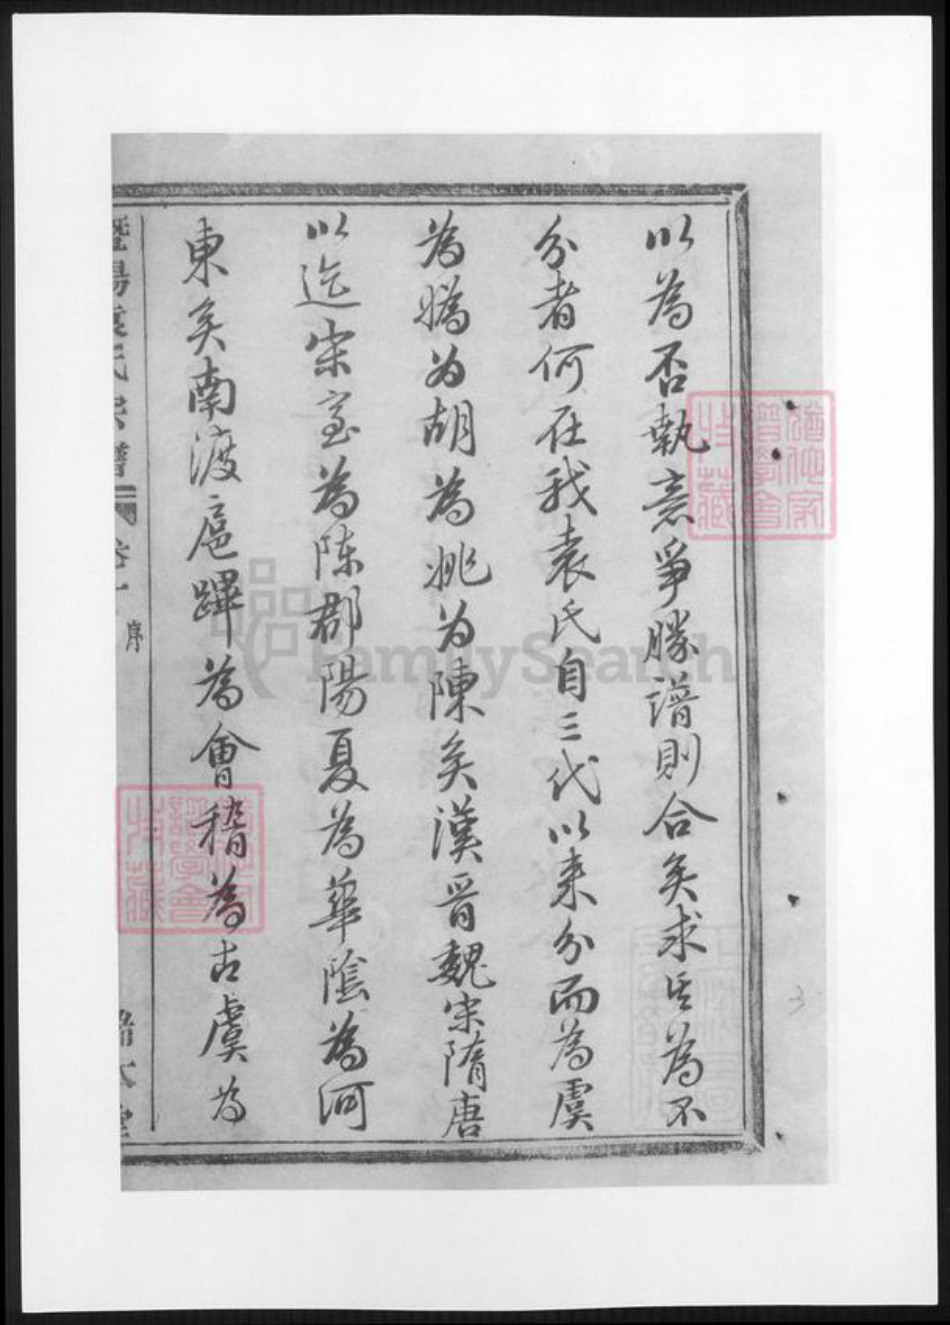 以為否執意爭勝譜則合矣求其為不
分者何在我袁氏自三代以来分而為虞
為媯为胡為姚为陳矣漢晋魏宋隋唐
以迄宋室為陈郡陽夏為華陰為河
東矣南渡扈蹕為會稽為古虞为
暨陽袁氏宗譜
卷一
序
FamilySearch
譜學會
特藏
譜學會
特藏
3